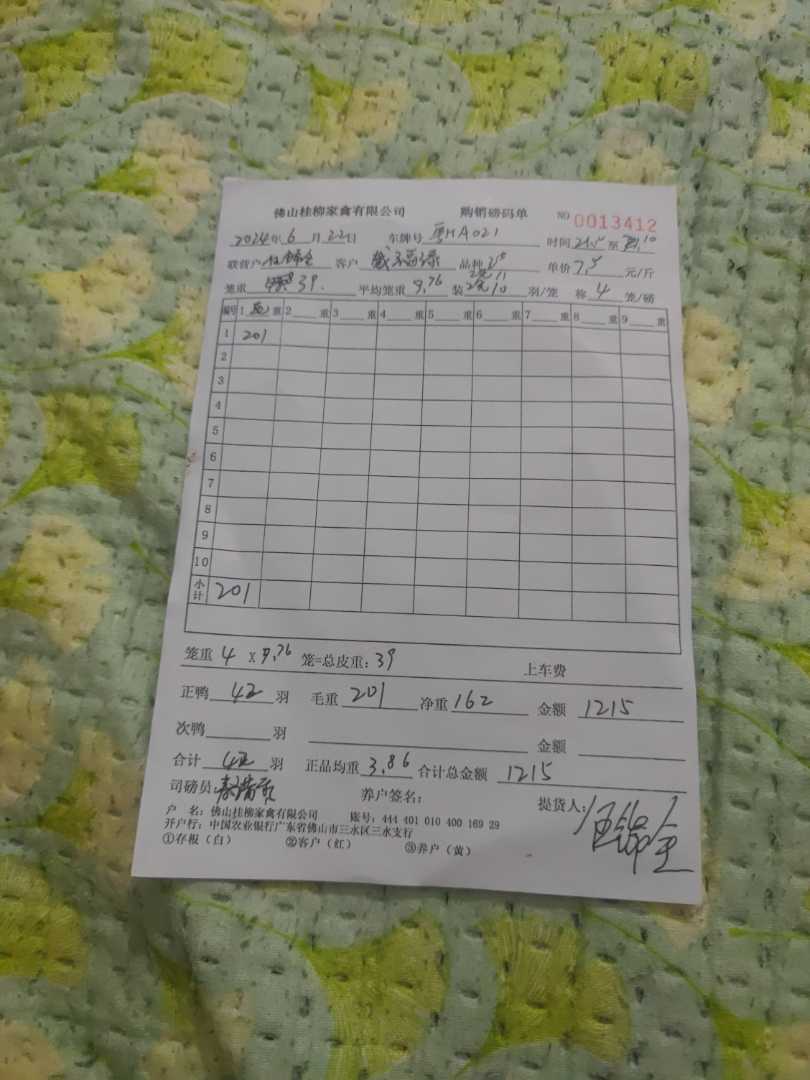 佛山桂柳家禽有限公司 购销磅码单 NO 0013412
2024年6月22日 车牌号 粤HA021 时间 至
联营户 客户 品种 单价 7.5 元/斤
笼重 39. 平均笼重 9.76 装 10 羽/笼 称 4 笼/磅
编号 1 重 2 重 3 重 4 重 5 重 6 重 7 重 8 重 9 重
1 201
2
3
4
5
6
7
8
9
10
小计 201
笼重 4 X 9.76 笼=总皮重: 39 上车费
正鸭 42 羽 毛重 201 净重 162 金额 1215
次鸭 羽 金额
合计 42 羽 正品均重 3.86 合计总金额 1215
司磅员: 养户签名: 提货人:
户 名: 佛山桂柳家禽有限公司 账号: 444 401 010 400 169 29
开户行: 中国农业银行广东省佛山市三水区三水支行
①存板（白） ②客户（红） ③养户（黄）